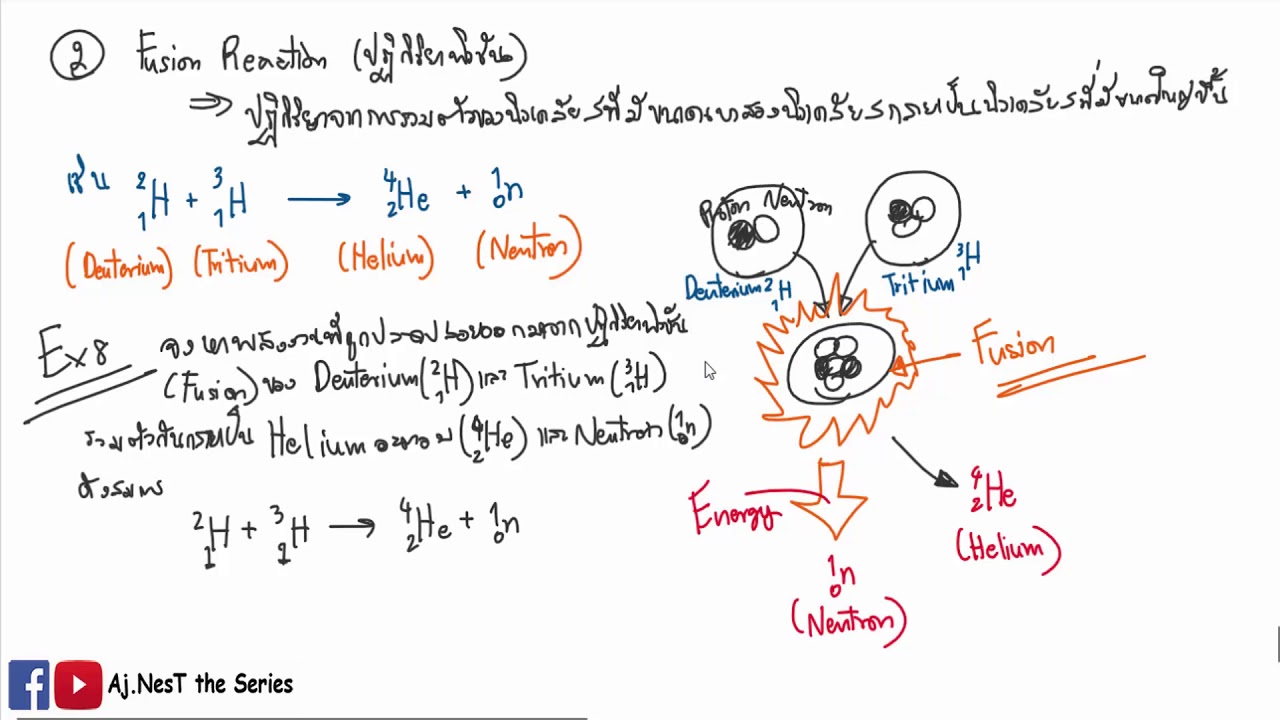 2 Fusion Reaction (ปฏิกิริยาฟิวชัน)
⇒ ปฏิกิริยาจากการรวมตัวของนิวเคลียสที่มีขนาดเบาสองนิวเคลียสกลายเป็นนิวเคลียสที่มีขนาดใหญ่ขึ้น
เช่น ²₁H + ³₁H → ⁴₂He + ¹₀n
(Deuterium) (Tritium) (Helium) (Neutron)
Ex8 จงหาพลังงานที่ถูกปลดปล่อยออกมาจากปฏิกิริยาฟิวชัน
(Fusion) ของ Deuterium (²₁H) และ Tritium (³₁H)
รวมตัวกันกลายเป็น Helium อะตอม (⁴₂He) และ Neutron (¹₀n)
ดังสมการ
²₁H + ³₁H → ⁴₂He + ¹₀n
Proton Neutron
Deuterium ²₁H
Tritium ³₁H
Fusion
Energy
⁴₂He
(Helium)
¹₀n
(Neutron)
Aj.NesT the Series